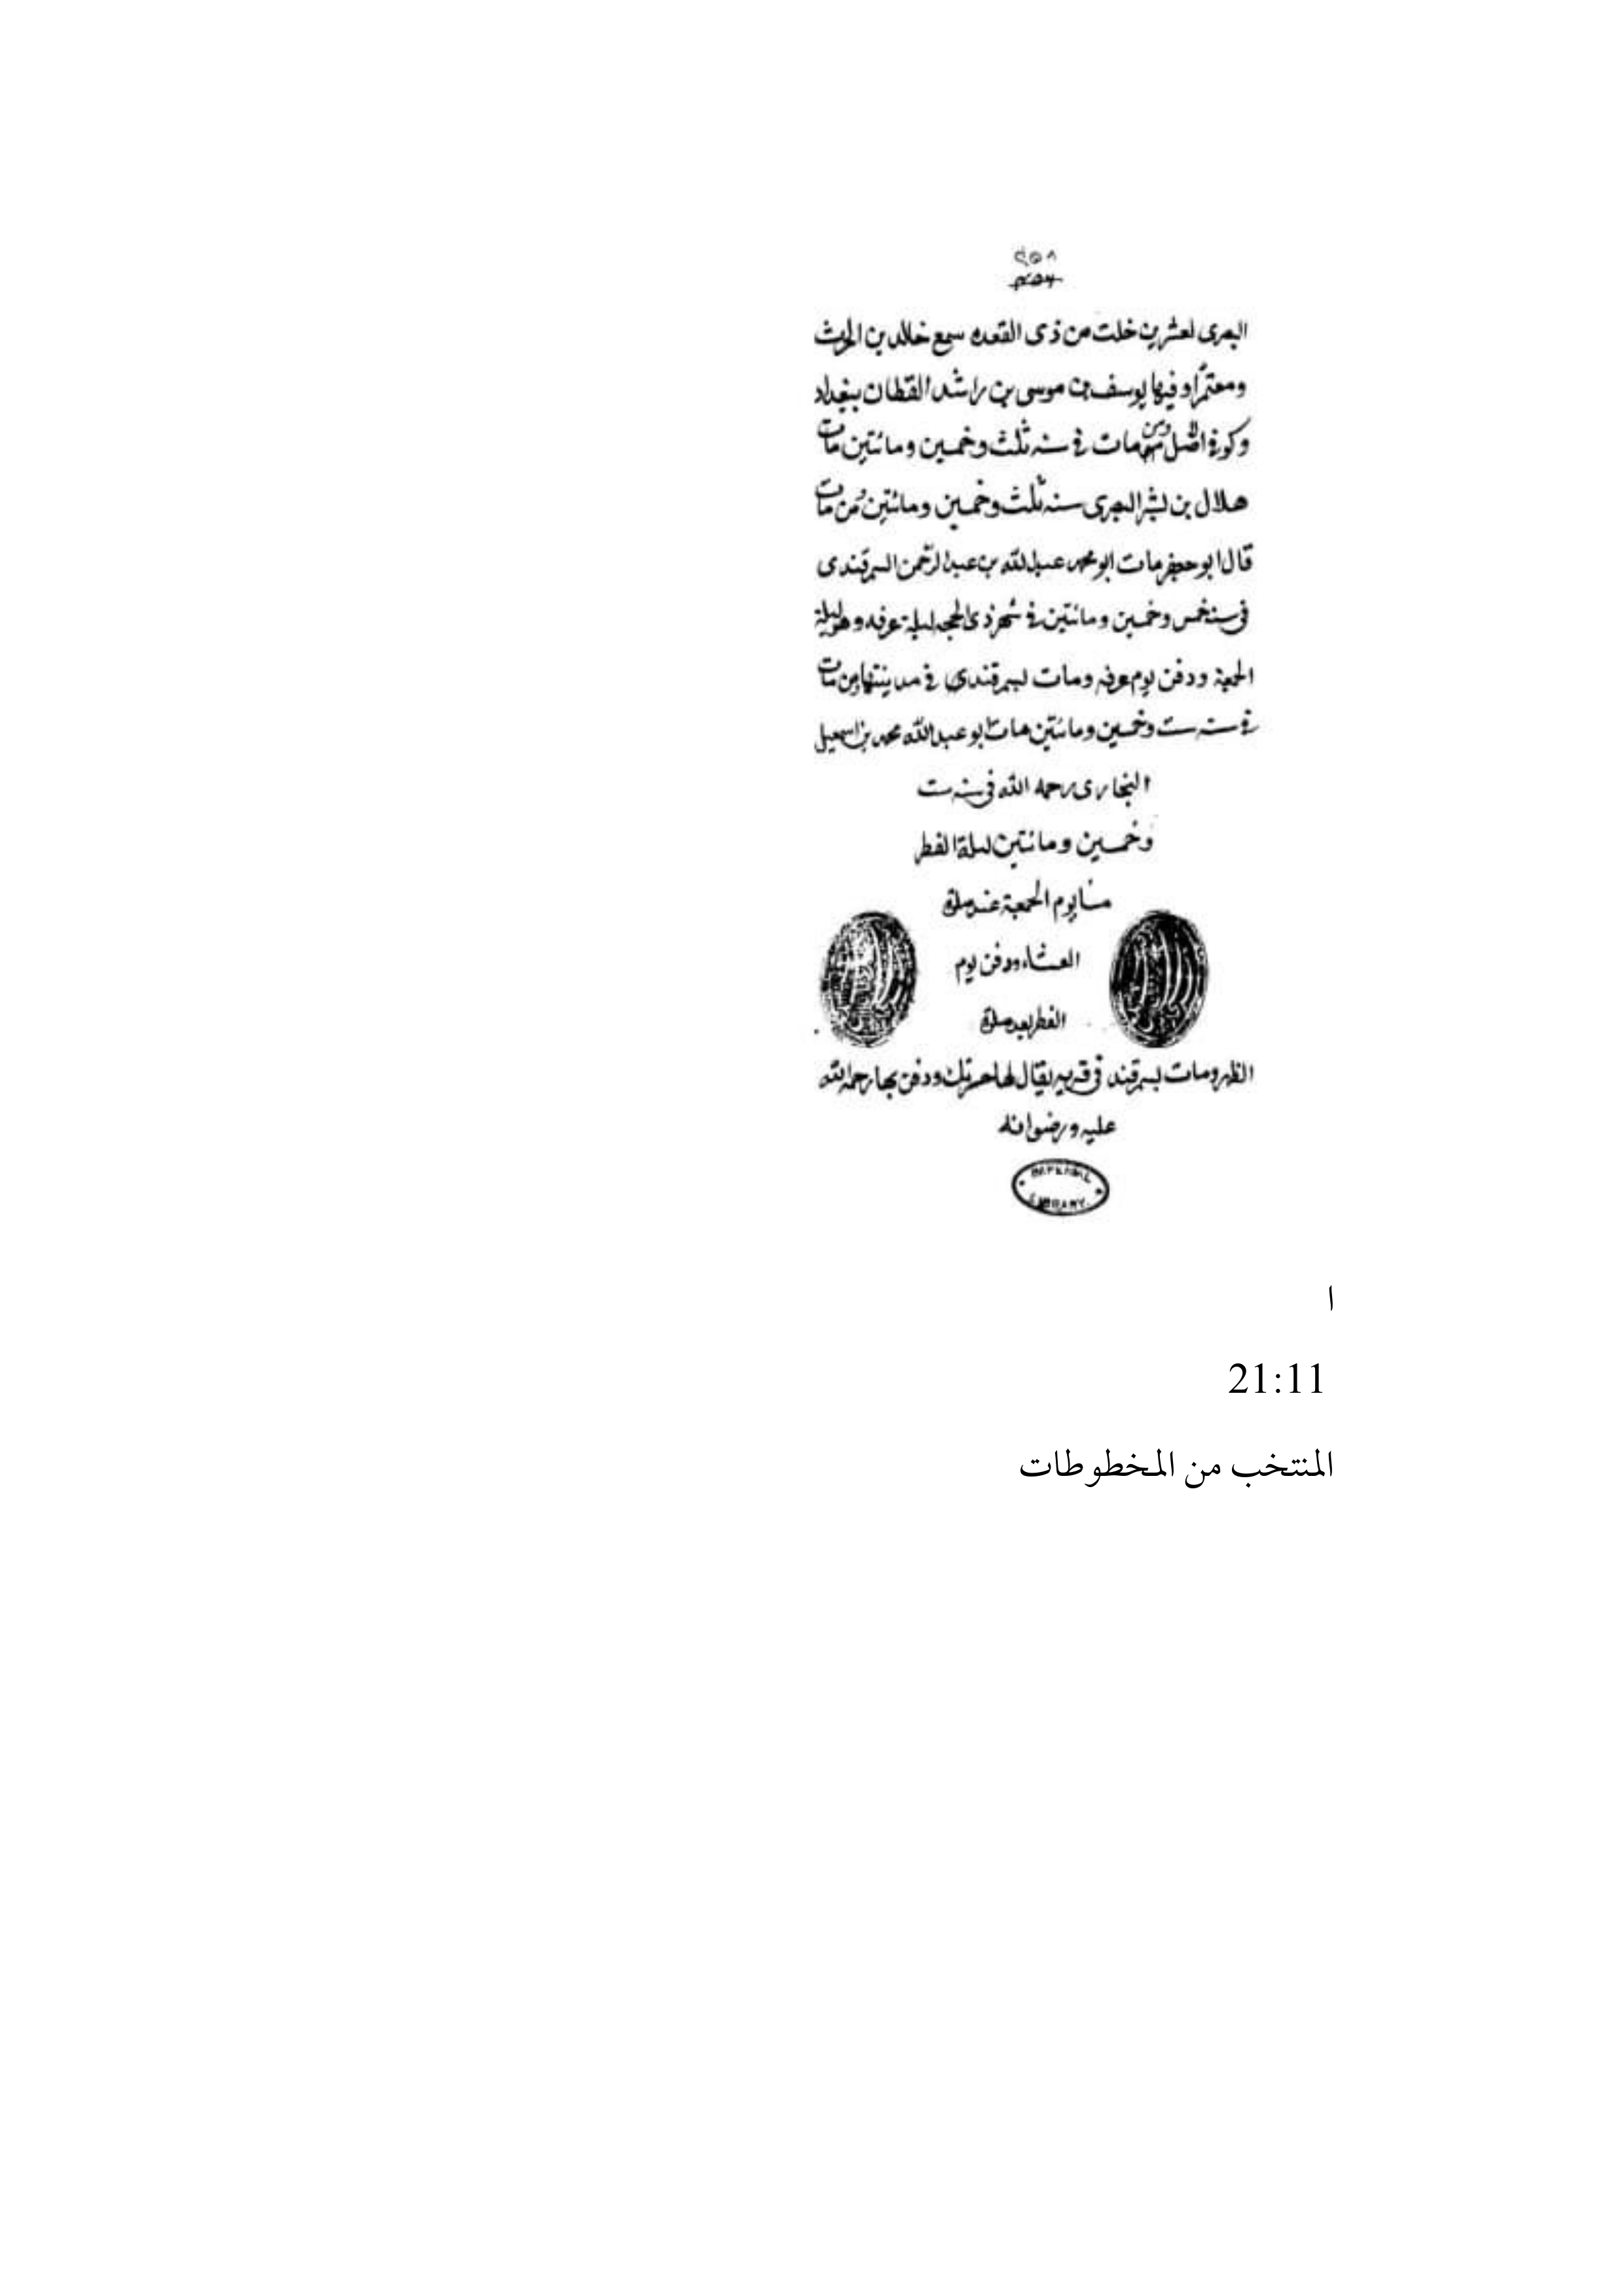 ٤٥٨
البصرى لعشرين خلت من ذى القعده سمع خالد بن الحرث
ومعتمرا وفيها يوسف بن موسى بن راشد القطان ببغداد
وكوفى الاصل ومن مات فى سنه ثلث وخمسين ومائتين مات
هلال بن بشر البصرى سنه ثلث وخمسين ومائتين ومن مات
قال ابو جعفر مات ابو محمد عبد الله بن عبد الرحمن السمرقندى
فى سنه خمس وخمسين ومائتين فى شهر ذى الحجه ليلة عرفه وهو ليلة
الجمعة ودفن يوم عرفه ومات بسمرقندى فى مدينتها من مات
فى سنه ست وخمسين ومائتين مات ابو عبد الله محمد بن اسمعيل
البخارى رحمه الله فى سنه ست
وخمسين ومائتين ليلة الفطر
مسا يوم الجمعة عند صلوة
العشاء ودفن يوم
الفطر بعد صلوة
الظهر ومات بسمرقند فى قريه يقال لها خرتنك ودفن بها رحمة الله
عليه ورضوانه
IMPERIAL
LIBRARY.
ا
21:11
المنتخب من المخطوطات